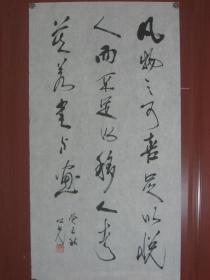 凡物之可喜足以悦
人而不足以移人者
莫若書与畫